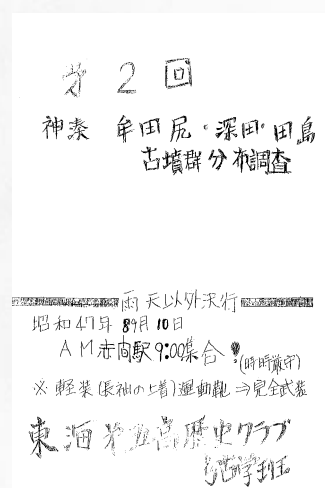 第2回
神湊 牟田尻・深田・田島
古墳群分布調査
雨天以外決行
昭和47年 8月10日
AM 赤間駅 9:00集合! (時時厳守)
※ 軽装(長袖の上着)運動靴 ⇒完全武装
東海第五高歴史クラブ
考古学班